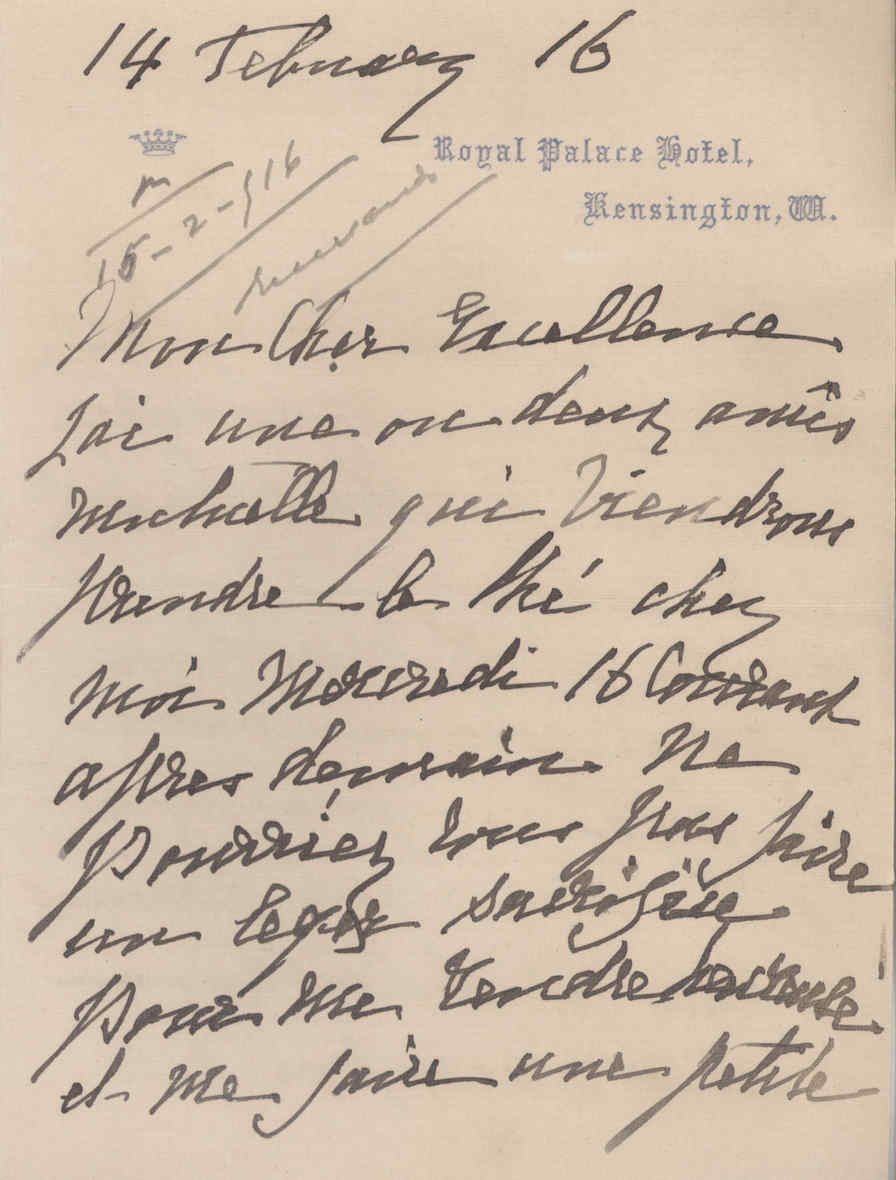 14 February 16
Royal Palace Hotel,
Kensington, W.
15-2-916
Mon Cher Excellence
J'ai une ou deux amies
qui viendrons
prendre le thé chez
moi Mercredi 16 Courant
apres demain. Ne
pourriez vous pas faire
un leger sacrifice
pour me rendre heureuse
et me faire une petite